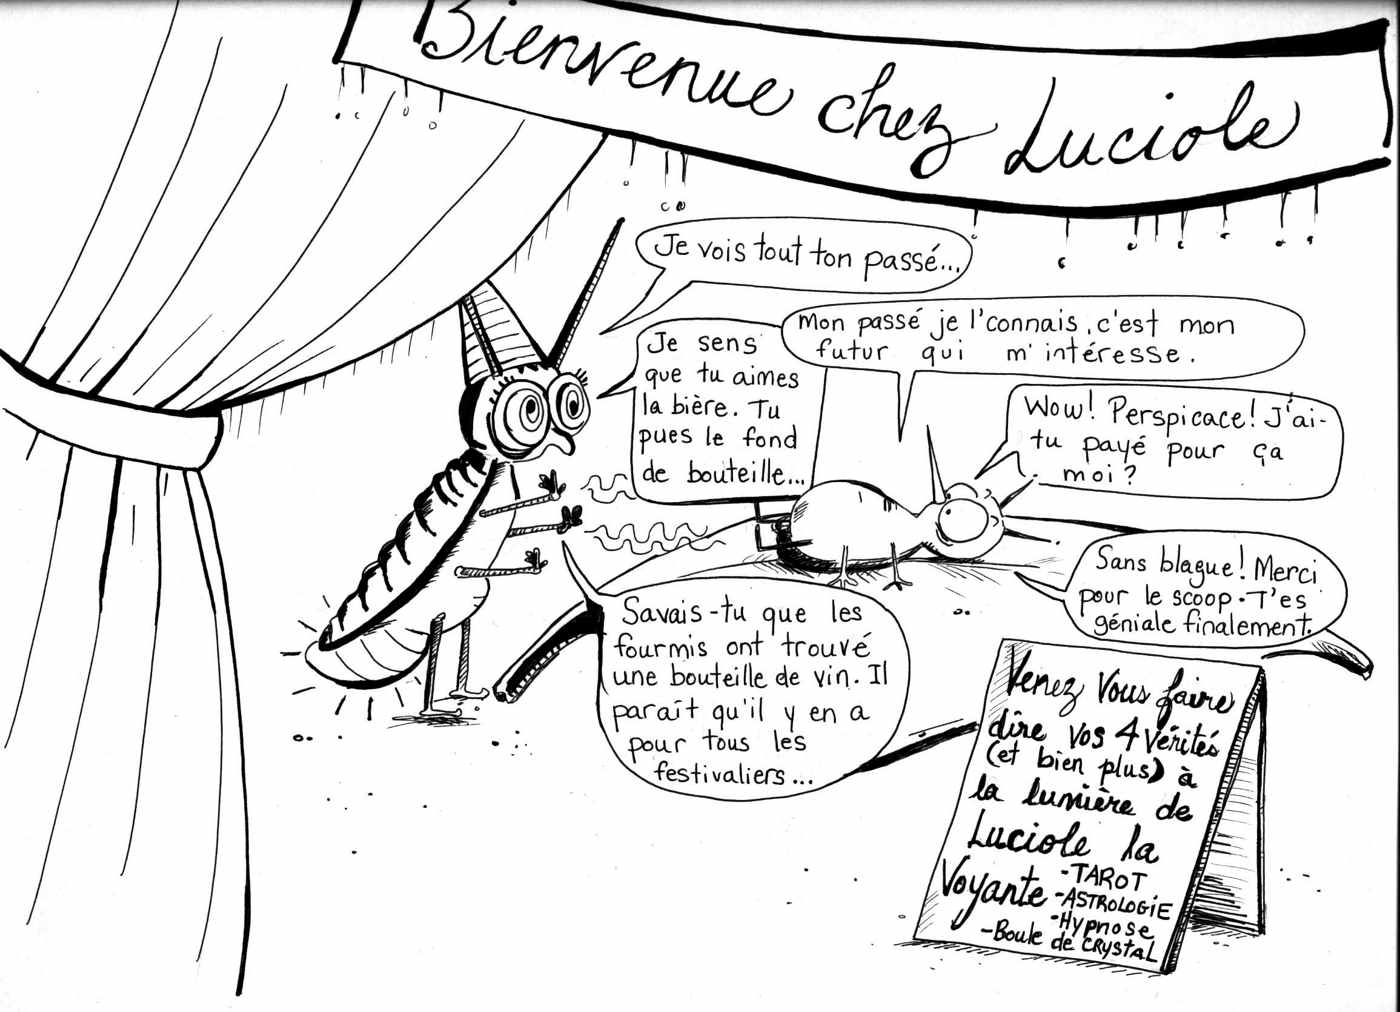 Bienvenue chez Luciole
Je vois tout ton passé...
Mon passé je l'connais, c'est mon
futur qui m'intéresse.
Je sens
que tu aimes
la bière. Tu
pues le fond
de bouteille...
Wow! Perspicace! J'ai-
tu payé pour ça
moi?
Savais-tu que les
fourmis ont trouvé
une bouteille de vin. Il
paraît qu'il y en a
pour tous les
festivaliers...
Sans blague! Merci
pour le scoop. T'es
géniale finalement.
Venez vous faire
dire vos 4 vérités
(et bien plus) à
la lumière de
Luciole la
Voyante
-TAROT
-ASTROLOGiE
-Hypnose
-Boule de CRYSTAL